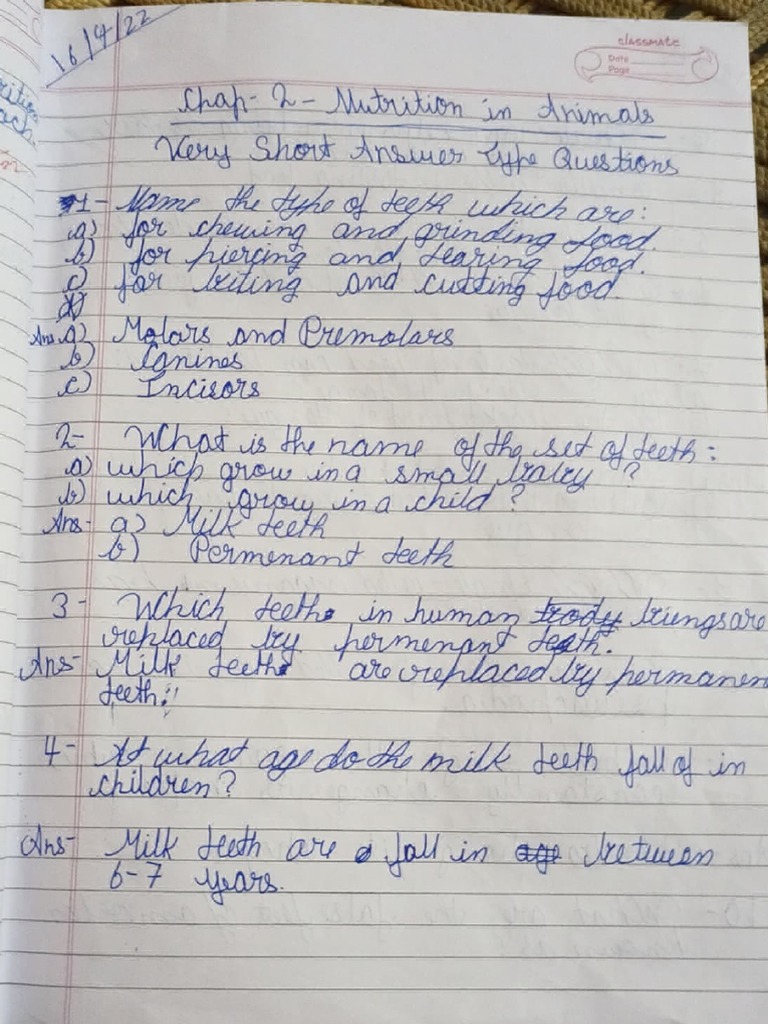 16/4/22
classmate
Date
Page
Chap- 2 - Nutrition in Animals
Very Short Answer Type Questions
1- Name the type of teeth which are:
a) for chewing and grinding food.
b) for piercing and tearing food.
c) for biting and cutting food.
Ans. a) Molars and Premolars
b) Canines
c) Incisors
2- What is the name of the set of teeth:
a) which grow in a small baby ?
b) which grow in a child ?
Ans- a) Milk teeth
b) Permenant teeth
3- Which teeth in human body biengs are
replaced by permenant teeth.
Ans- Milk teeth are replaced by permanen
teeth.
4- At what age do the milk teeth fall of in
children?
Ans- Milk teeth are fall in age between
6-7 years.